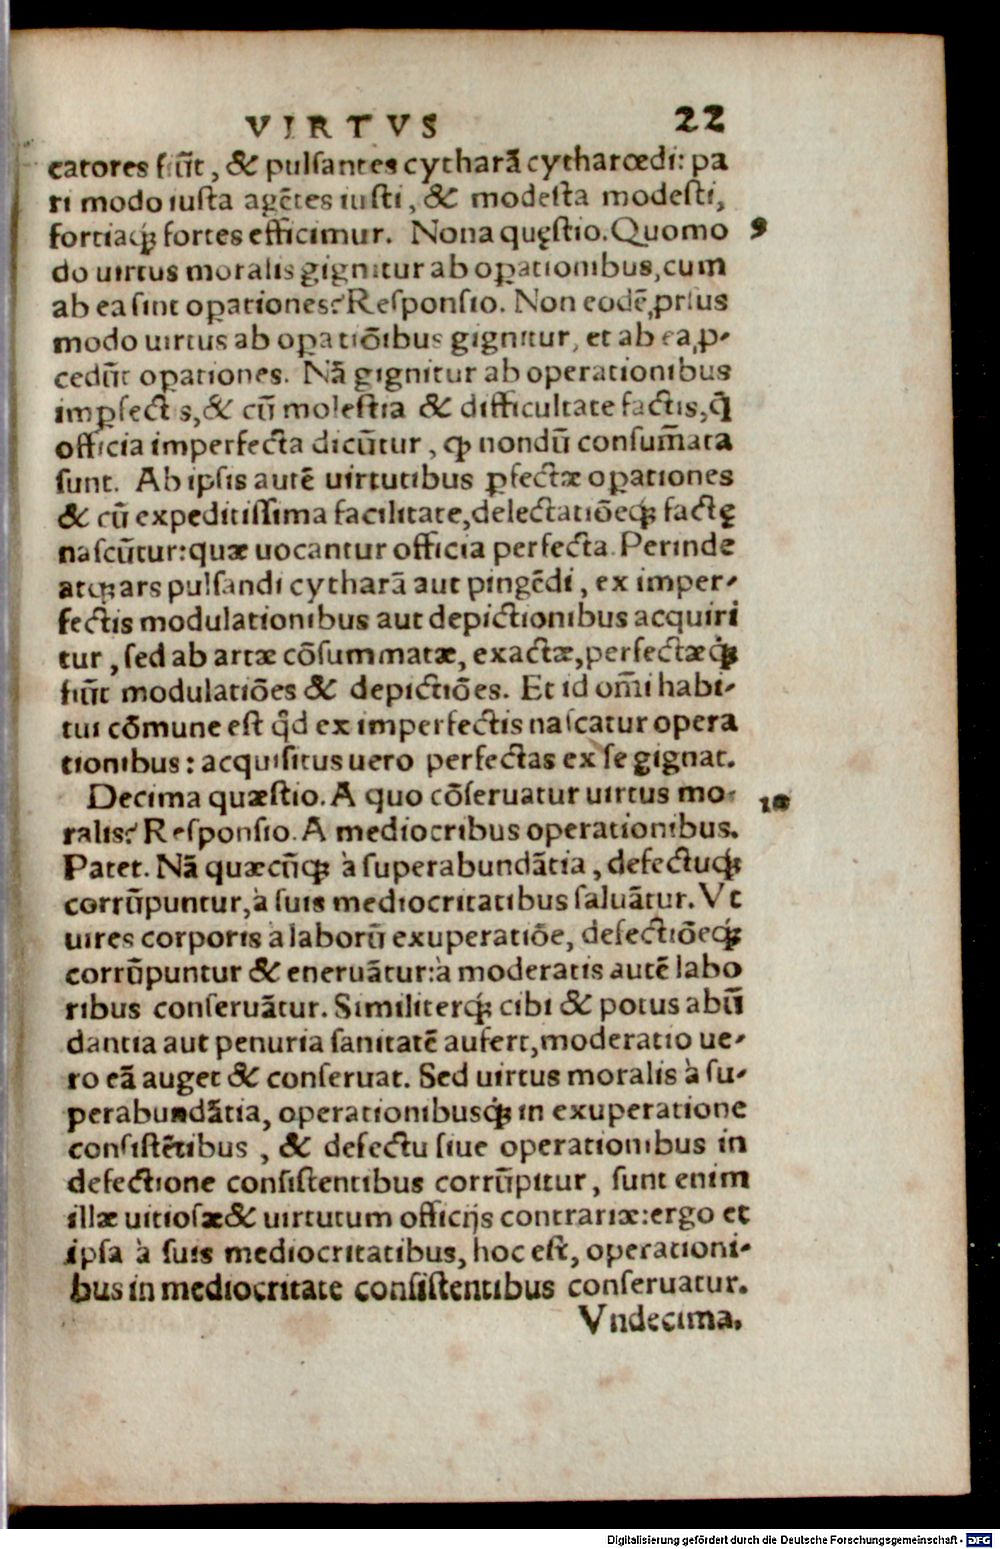 VIRTVS 22
catores fiūt, & pulsantes cytharā cytharœdi: pa
ri modo iusta agētes iusti, & modesta modesti,
fortiaq; fortes efficimur. Nona quęstio. Quomo 9
do uirtus moralis gignitur ab oꝑationibus, cum
ab ea sint oꝑationes? Responsio. Non eodē ꝓrsus
modo uirtus ab oꝑatiōibus gignitur, et ab ea ꝓ-
cedūt oꝑationes. Nā gignitur ab operationibus
imꝑfectis, & cū molestia & difficultate factis, q̄
officia imperfecta dicūtur, ꝙ nondū consum̄ata
sunt. Ab ipsis autē uirtutibus ꝑfectæ oꝑationes
& cū expeditissima facilitate, delectatiōeq; factę
nascūtur: quæ uocantur officia perfecta. Perinde
atq; ars pulsandi cytharā aut pingēdi, ex imper-
fectis modulationibus aut depictionibus acquiri
tur, sed ab artæ cōsummatæ, exactæ, perfectæq;
fiūt modulatiōes & depictiōes. Et id om̄i habi-
tui cōmune est qd̓ ex imperfectis nascatur opera
tionibus: acquisitus uero perfectas ex se gignat.
Decima quæstio. A quo cōseruatur uirtus mo- 10
ralis? Responsio. A mediocribus operationibus.
Patet. Nā quæcūq; à superabundātia, defectuq;
corrūpuntur, à suis mediocritatibus saluātur. Vt
uires corporis à laborū exuperatiōe, defectiōeq;
corrūpuntur & eneruātur: à moderatis autē labo
ribus conseruātur. Similiterq; cibi & potus abū
dantia aut penuria sanitatē aufert, moderatio ue-
ro eā auget & conseruat. Sed uirtus moralis à su-
perabundātia, operationibusq; in exuperatione
consistētibus, & defectu siue operationibus in
defectione consistentibus corrūpitur, sunt enim
illæ uitiosæ & uirtutum officijs contrariæ: ergo et
ipsa à suis mediocritatibus, hoc est, operationi-
bus in mediocritate consistentibus conseruatur.
Vndecima.
Digitalisierung gefördert durch die Deutsche Forschungsgemeinschaft - DFG